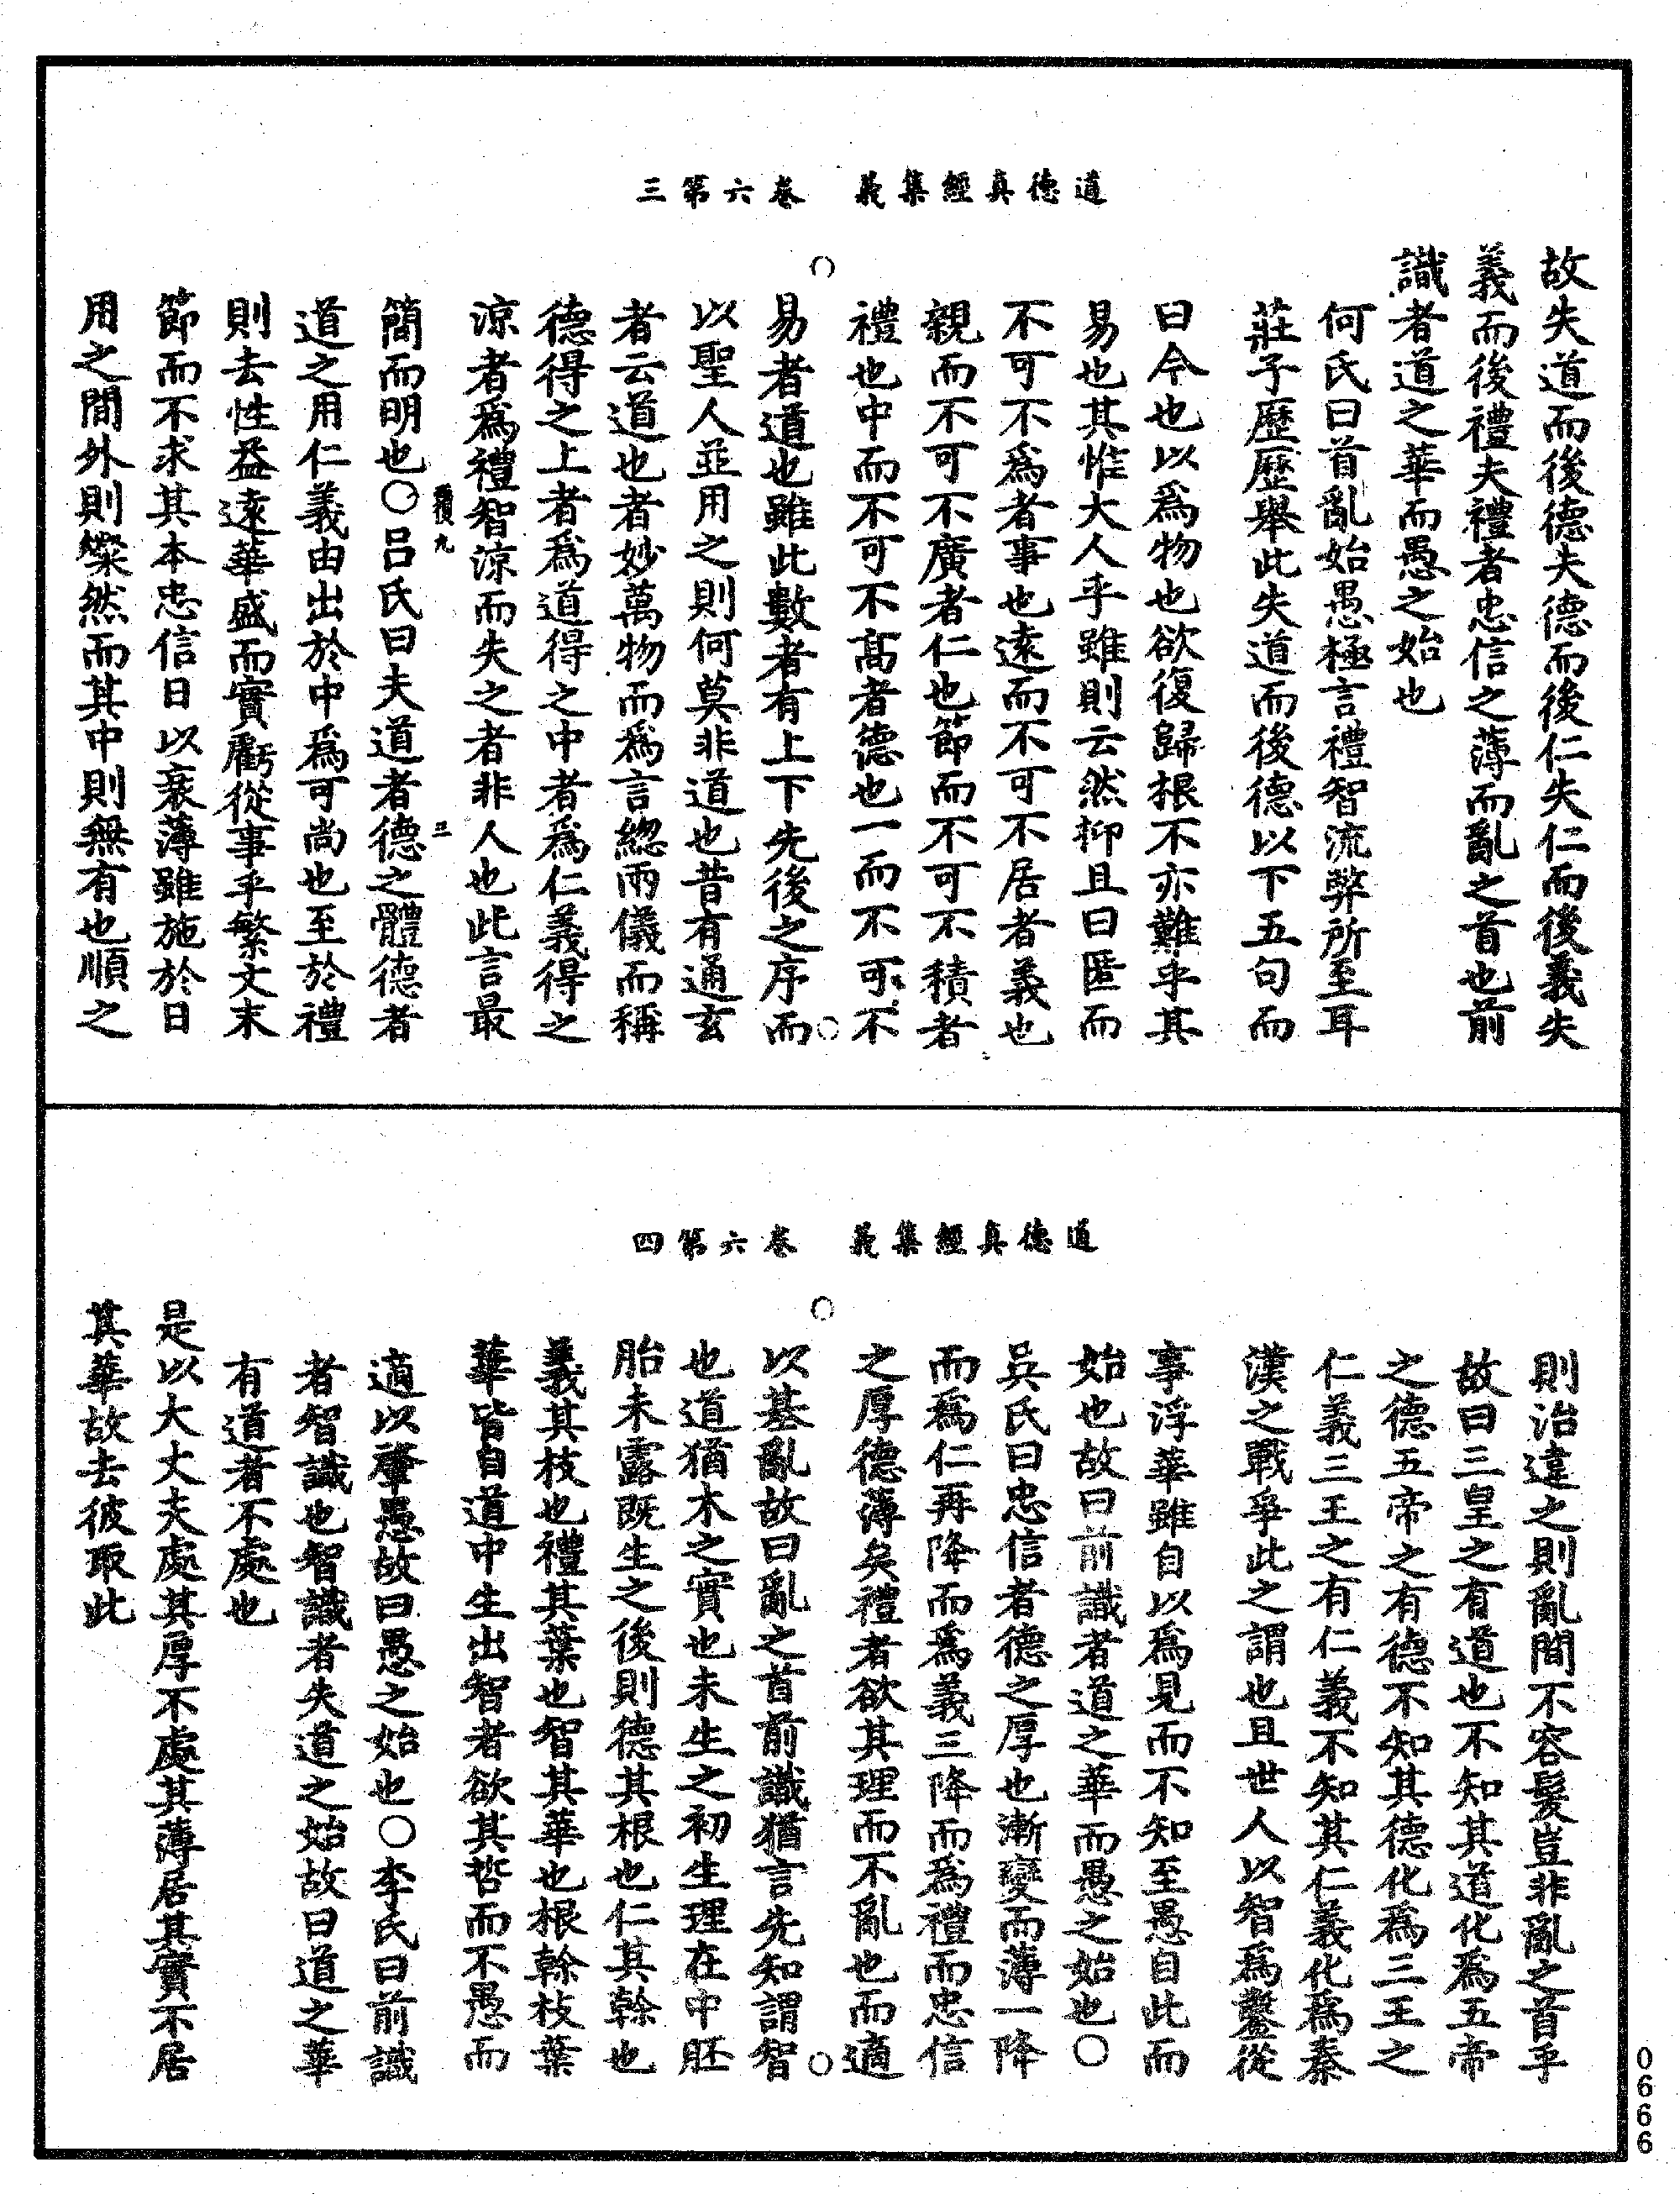 道德真經集義　卷六第三
故失道而後德夫德而後仁失仁而後義失
義而後禮夫禮者忠信之薄而亂之首也前
識者道之華而愚之始也
何氏曰首亂始愚極言禮智流弊所至耳
莊子歷歷舉此失道而後德以下五句而
曰今也以爲物也欲復歸根不亦難乎其
易也其惟大人乎雖則云然抑且曰匿而
不可不爲者事也遠而不可不居者義也
親而不可不廣者仁也節而不可不積者
禮也中而不可不高者德也一而不可不
易者道也雖此數者有上下先後之序而
以聖人並用之則何莫非道也昔有通玄
者云道也者妙萬物而爲言總兩儀而稱
德得之上者爲道得之中者爲仁義得之
涼者爲禮智涼而失之者非人也此言最
簡而明也〇呂氏曰夫道者德之體德者
道之用仁義由出於中爲可尚也至於禮
則去性益遠華盛而實虧從事乎繁文末
節而不求其本忠信日以衰薄雖施於日
用之間外則燦然而其中則無有也順之
道德真經集義　卷六第四
則治違之則亂間不容髮豈非亂之首乎
故曰三皇之有道也不知其道化爲五帝
之德五帝之有德不知其德化爲三王之
仁義三王之有仁義不知其仁義化爲秦
漢之戰爭此之謂也且世人以智爲鑿從
事浮華雖自以爲見而不知至愚自此而
始也故曰前識者道之華而愚之始也〇
吳氏曰忠信者德之厚也漸變而薄一降
而爲仁再降而爲義三降而爲禮而忠信
之厚德薄矣禮者欲其理而不亂也而適
以基亂故曰亂之首前識猶言先知謂智
也道猶木之實也未生之初生理在中胚
胎未露既生之後則德其根也仁其榦也
義其枝也禮其葉也智其華也根榦枝葉
華皆自道中生出智者欲其哲而不愚而
適以肇愚故曰愚之始也〇李氏曰前識
者智識也智識者失道之始故曰道之華
有道者不處也
是以大丈夫處其厚不處其薄居其實不居
其華故去彼取此
0666